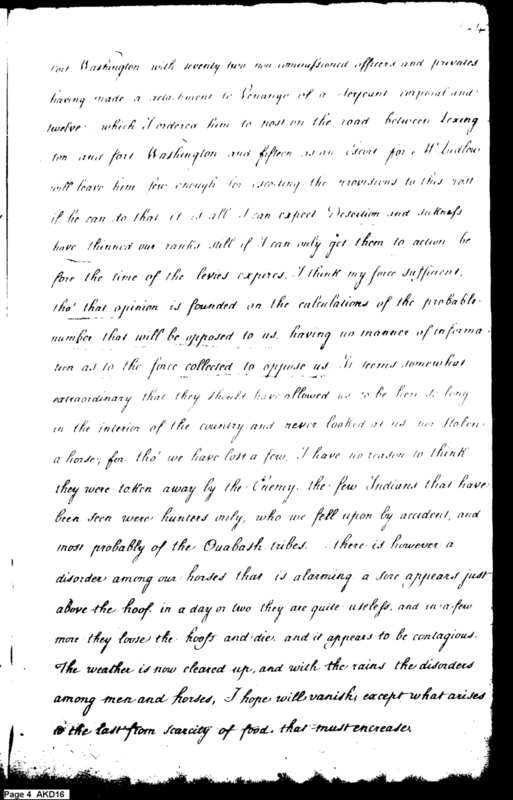 fort Washington with seventy two non commissioned officers and privates
having made a detachment to Venango of a Serjeant corporal and
twelve which I ordered him to post on the road between Lexing
ton and fort Washington and fifteen as an Escort for Mr Ludlow
will leave him few enough for escorting the provisions to this post
if he can do that it is all I can expect Desertion and sickness
have thinned our ranks still if I can only get them to action be
fore the time of the levies expires, I think my force sufficient,
tho' that opinion is founded on the calculations of the probable
number that will be opposed to us, having no manner of informa
tion as to the force collected to oppose us. It seems somewhat
extraordinary that they should have allowed us to be here so long
in the interior of the country and never looked at us nor stolen
a horse; for tho' we have lost a few, I have no reason to think
they were taken away by the Enemy. the few Indians that have
been seen were hunters only, who we fell upon by accident, and
most probably of the Ouabash tribes. there is however a
disorder among our horses that is alarming a sore appears just
above the hoof. in a day or two they are quite useless, and in a few
more they loose the hoofs and die. and it appears to be contagious.
The weather is now cleared up, and with the rains the disorders
among men and horses, I hope will vanish, except what arises
to the last from scarcity of food. that must encrease.
Page 4 AKD16